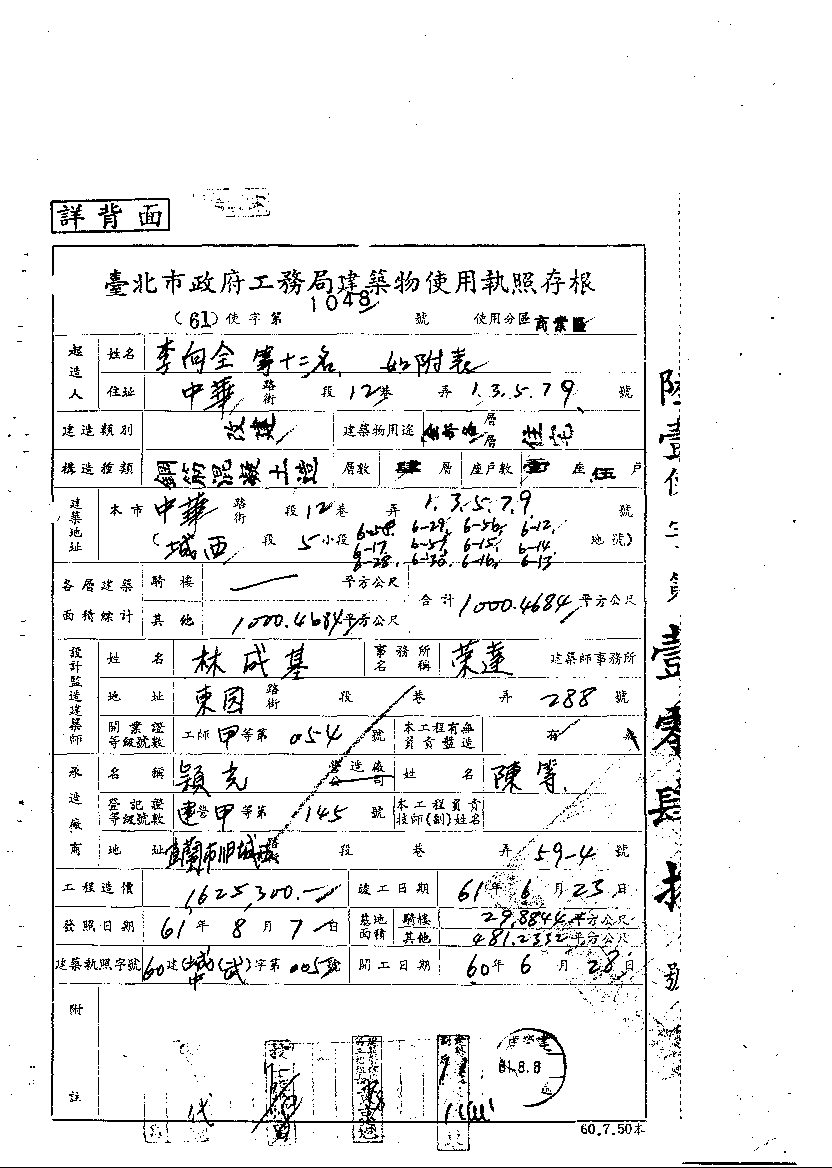 詳背面
臺北市政府工務局建築物使用執照存根
(61)使字第1048號 使用分區商業區
起造人 姓名 李向全等十二名 如附表
住址 中華路街 段12巷 弄1.3.5.7.9.號
建造類別 改建 建築物用途 層層 住宅
構造種類 鋼筋混凝土造 層數 肆層 座戶數 壹座伍戶
建築地址 本市中華路街 段12巷 弄1.3.5.7.9.號
(城西 段5小段 6-29, 6-56, 6-12, 6-17, 6-15, 6-14, 6-28, 6-30, 6-16, 6-13 地號)
各層建築面積總計 騎樓 — 平方公尺 合計1000.4684平方公尺
其他 1000.4684平方公尺
設計監造建築師 姓名 林成基 事務所名稱 榮達 建築師事務所
地址 東園路街 段 巷 弄288號
開業證等級號數 工師甲等第054號 本工程有無負責監造 有 無
承造廠商 名稱 穎克 營造廠公司 姓名 陳等
登記證等級號數 建營甲等第145號 本工程負責技師(副)姓名
地址 宜蘭市旧城 段 巷 弄59-4號
工程造價 1,625,300.— 竣工日期 61年6月23日
發照日期 61年8月7日 基地面積 騎樓 29.8844平方公尺
其他 481.2332平方公尺
建築執照字號 60建(城中)(武)字第005號 開工日期 60年6月28日
附註
代
61.8.8
60.7.50本
陸壹使字第壹零肆捌號